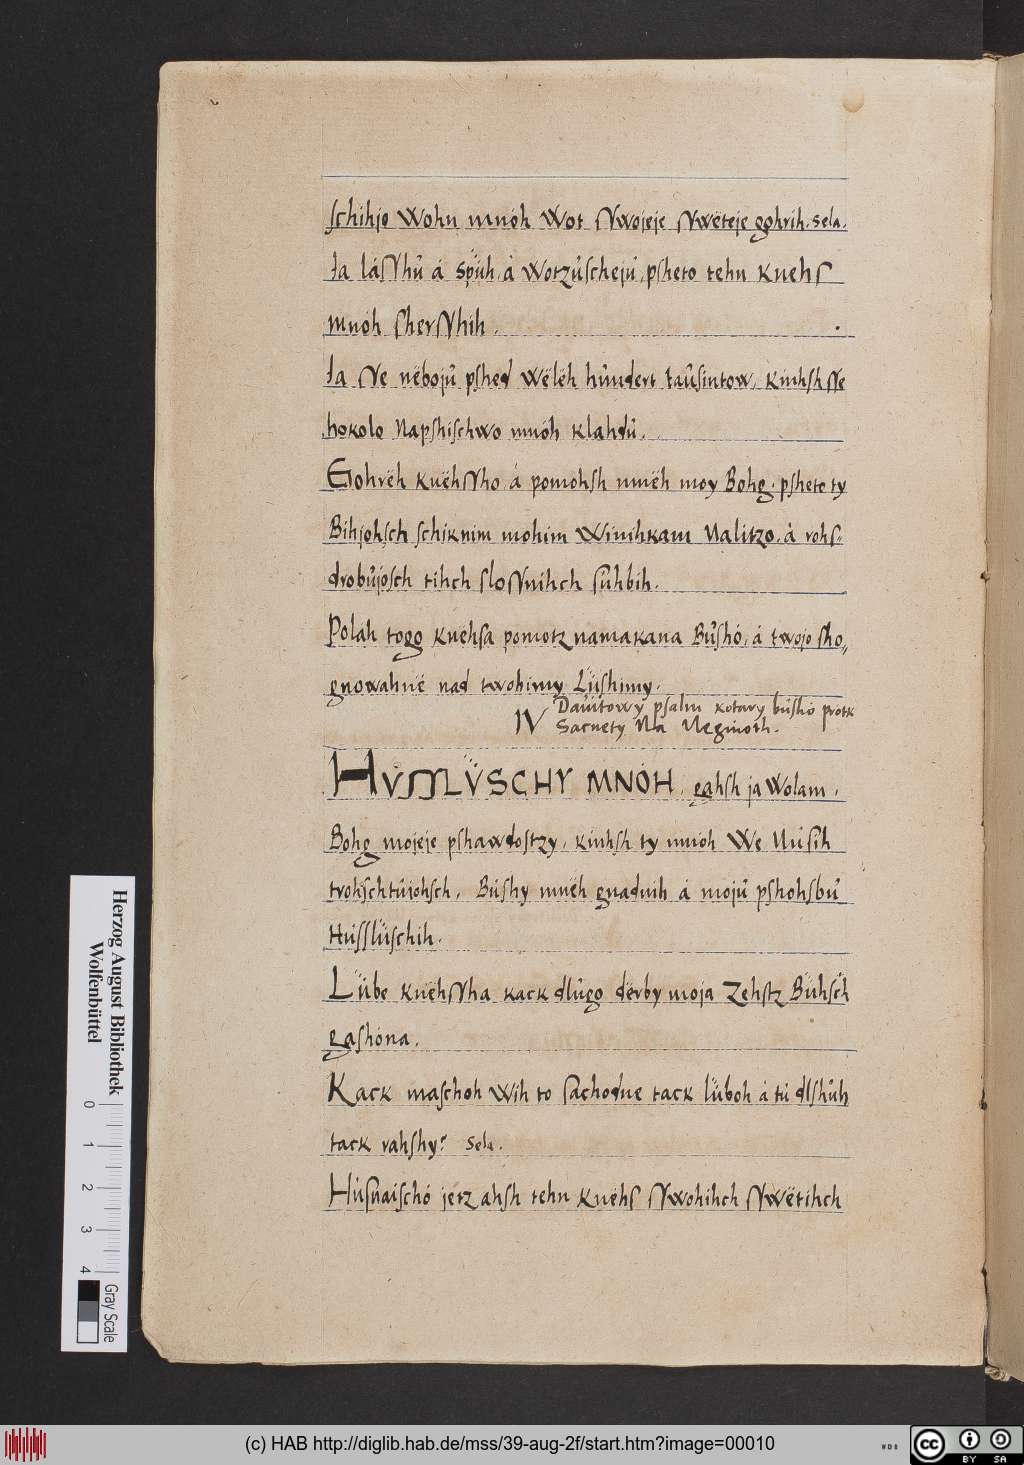 schihjo Wohn mnóh Wot Swojeje Swëteje gohrih. Sela.
Ja láSShů á Spüh, á Wotzůscheju, psheto tehn Knehs
mnóh sherSShih.
Ja Se nëbojů pshed Wëlëh hůndert taůsintow, kinhsh Se
hokolo Napshischwo mnóh klahdů.
Gohrëh knëhSSho, á pomohsh mnëh moy Bohg, psheto ty
Bihjohsch schiknim mohim Winihkam Nalitzo, á rohs-
drobůjosch tihch sloSSnihch sůhbih.
Polah togo knëhsa pomotz namakana Bůshó, á twojo sho-
gnowahnë nad twohimy Lüshimy.
IV Dawitowy psalm kotary bushó protk
Sarnety Na Neginoth.
HUSSLÜSCHY MNÓH, gahsh ja Wolam,
Bohg mojeje pshawdostzy, kinhsh ty mnóh We Nusih
trohschtůjohsch. Bushy mnëh gnadnih á mojů pshohsbů
Hüsslüschih.
Lübe knëhSSha kack dlůgo dërby moja Zehstz Bühsch
gashóna.
Kack maschoh Wih to sachodne tack lüboh á tu dlshůh
tack rahshy? Sela.
Husnaischó jetz ahsh tehn Knëhs Swohihch Swëtihch
Herzog August Bibliothek
Wolfenbüttel
0 1 2 3 4
Gray Scale
(c) HAB http://diglib.hab.de/mss/39-aug-2f/start.htm?image=00010
WDB
CC BY SA